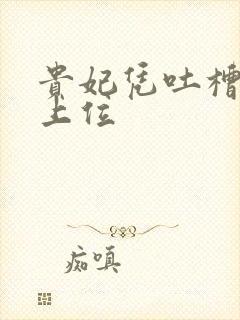 貴妃凭吐槽
上位
痴嗔